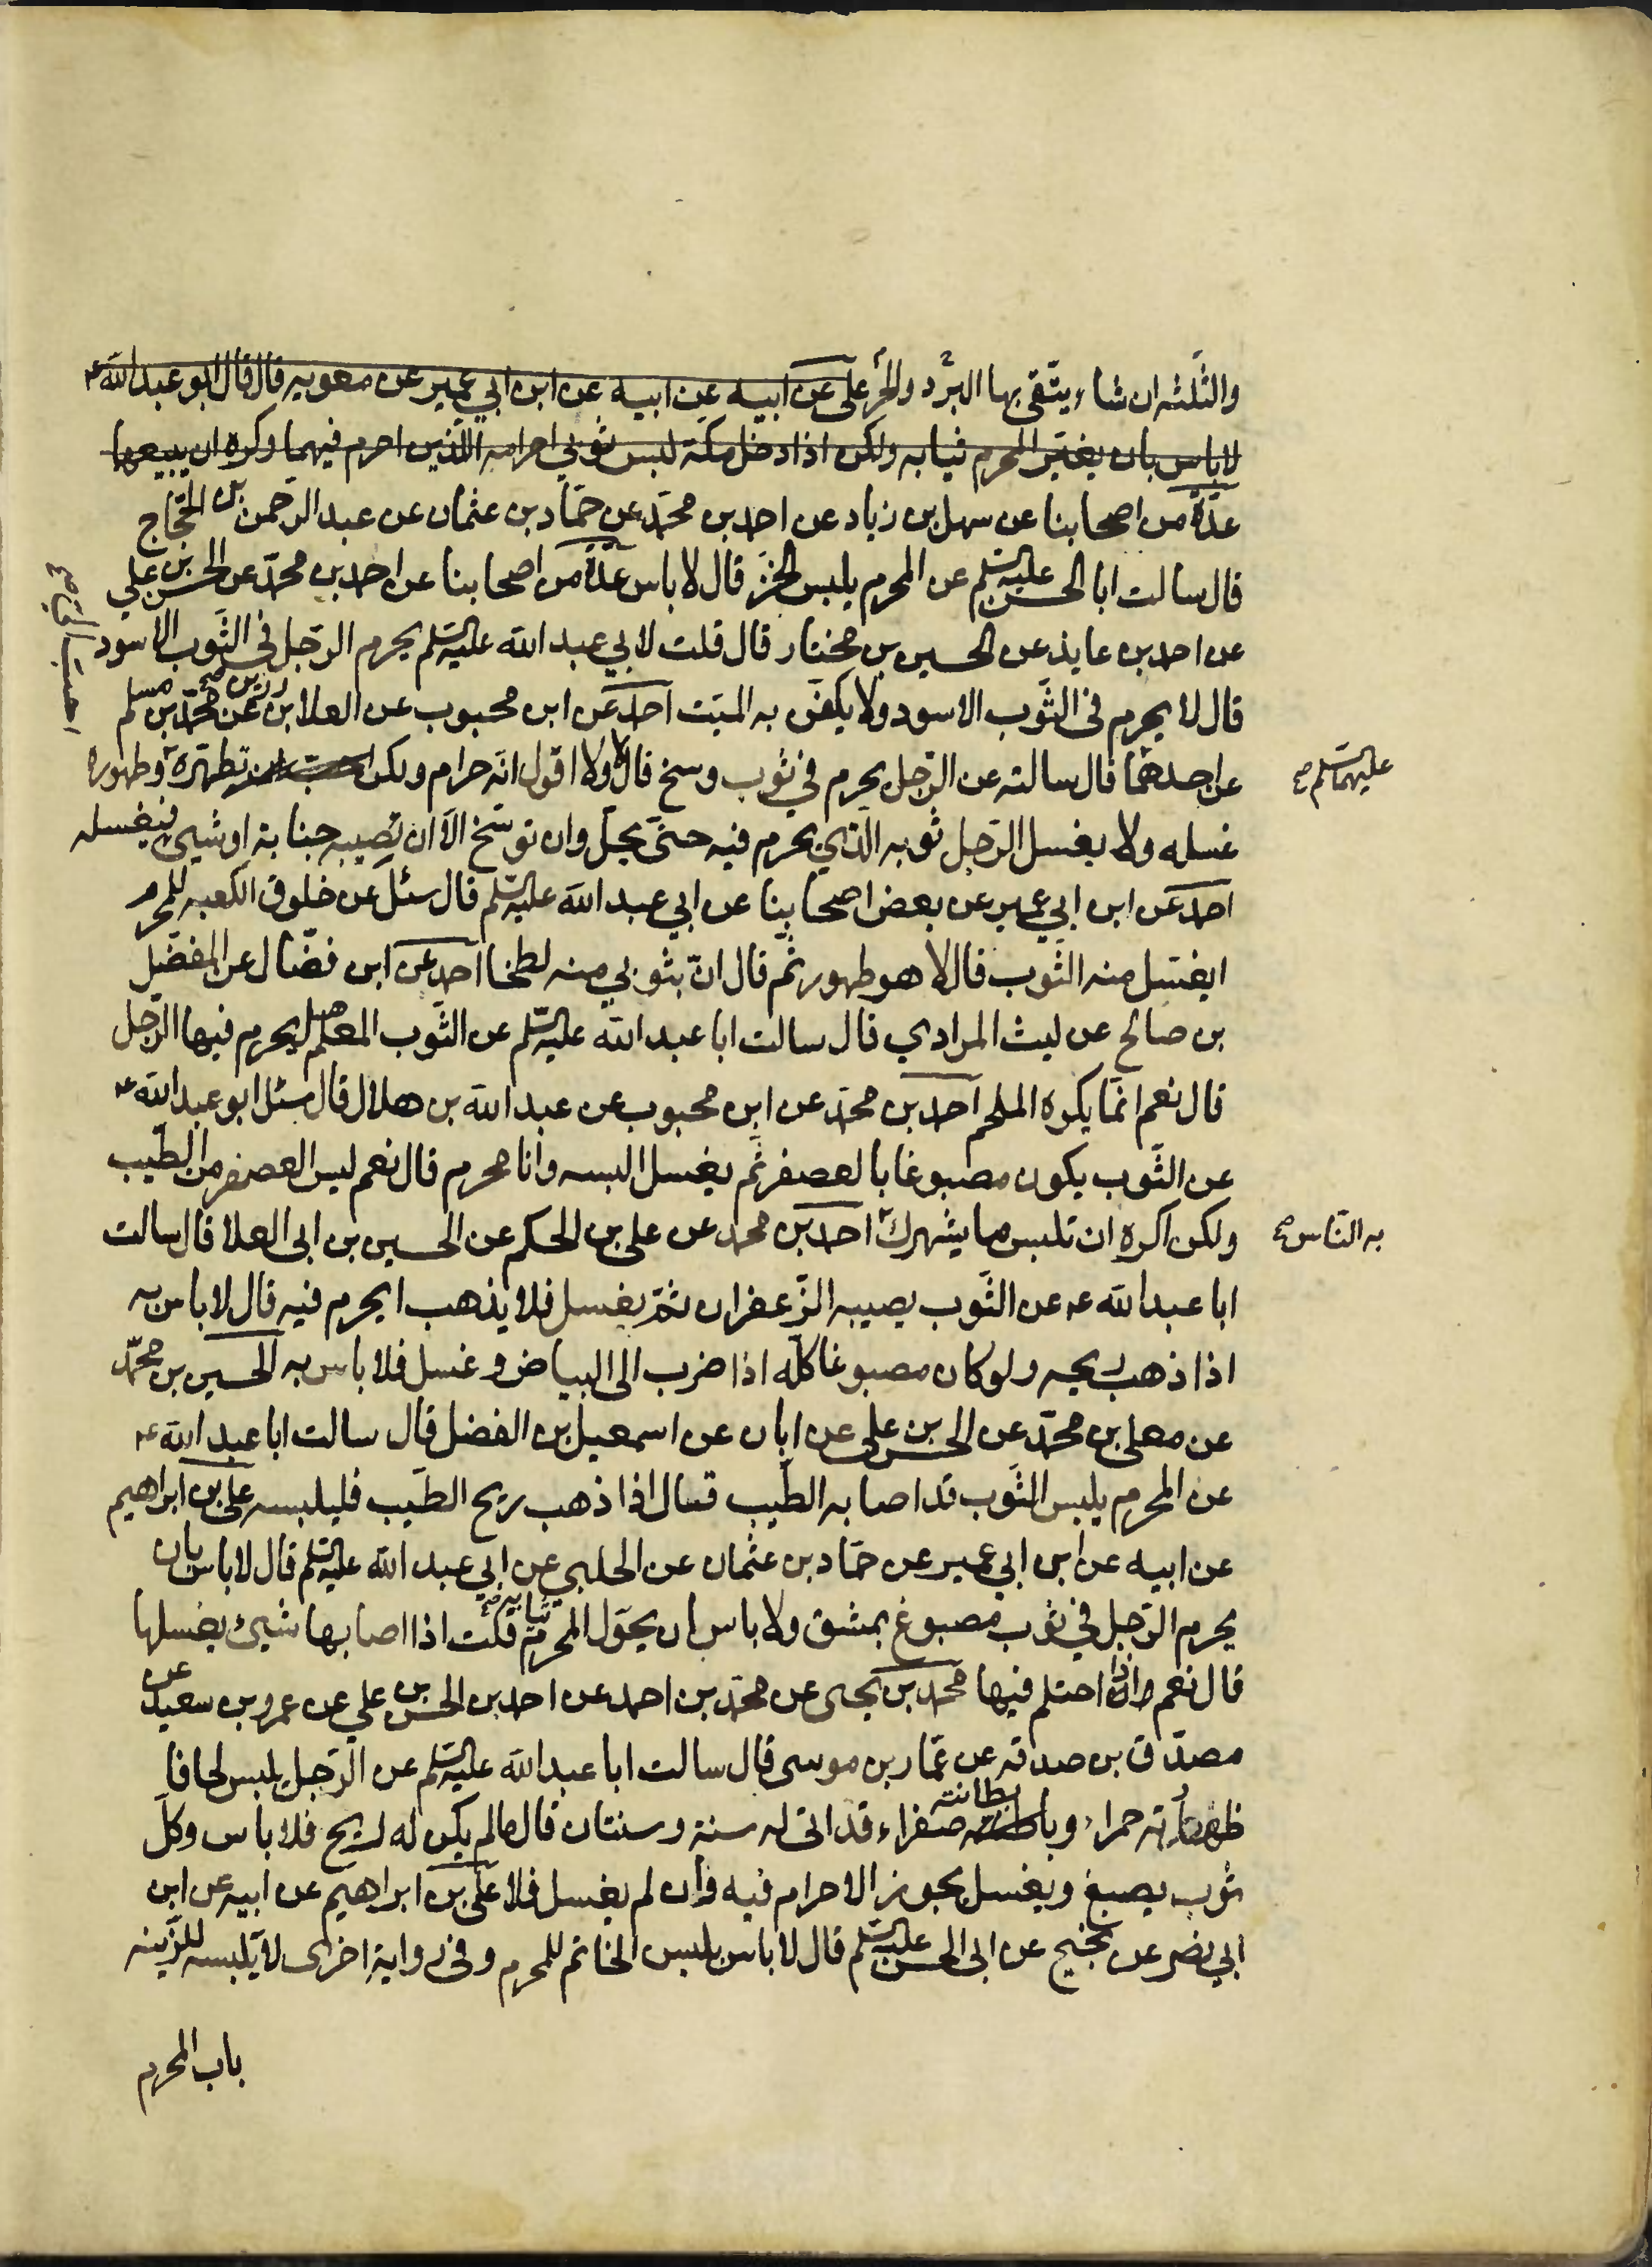 والثلثه ان شاء يتّقى بها البرد والحر على عن ابيه عن ابيه عن ابن ابي عمير عن معويه قال قال ابو عبد الله ع
لا باس بان يغير المحرم ثيابه ولكن اذا دخل مكة لبس ثوبي احرامه اللذين احرم فيهما وكره ان يبيعها
عدّة من اصحابنا عن سهل بن زياد عن احمد بن محمّد عن حمّاد بن عثمان عن عبد الرّحمن بن الحجّاج
قال سالت ابا الحسن عليه السّلم عن المحرم يلبس الخزّ قال لا باس عدّة من اصحابنا عن احمد بن محمّد عن الحسن بن علي
عن احمد بن عايذ عن الحسين بن مختار قال قلت لابي عبد الله عليه السّلم يحرم الرّجل في الثّوب الاسود
قال لا يحرم فى الثّوب الاسود ولا يكفّن به الميّت احمد عن ابن محبوب عن العلا بن رزين صح عن محمّد بن مسلم
عن احدهما قال سالته عن الرّجل يحرم في ثوب وسخ قال لا ولا اقول انّه حرام ولكن تطهّره وطهوره
عليهما السّلم صح
غسله ولا يغسل الرّجل ثوبه الّذي يحرم فيه حتّى يحلّ وان توسّخ الّا ان تصيبه جنابة او شيئ فيغسله
احمد عن ابن ابي عمير عن بعض اصحابنا عن ابي عبد الله عليه السّلم قال سئل عن خلوق الكعبه للمحرم
ايغسل منه الثّوب قال لا هو طهور ثمّ قال انّ بثوبي منه لطخا احمد عن ابن فضّال عن المفضّل
بن صالح عن ليث المرادي قال سالت ابا عبد الله عليه السّلم عن الثّوب المعلم هل يحرم فيها الرّجل
قال نعم انّما يكره الملحم احمد بن محمّد عن ابن محبوب عن عبد الله بن هلال قال سئل ابو عبد الله ع
عن الثّوب يكون مصبوغا بالعصفر ثمّ يغسل البسه وانا محرم قال نعم ليس العصفر من الطّيب
ولكن اكره ان تلبس ما يشهرك احمد بن محمد عن على بن الحكم عن الحسين بن ابى العلا قال سالت
به النّاس صح
ابا عبد الله ع عن الثّوب يصيبه الزّعفران ثمّ يغسل فلا يذهب ايحرم فيه قال لا باس به
اذا ذهب ريحه ولو كان مصبوغا كلّه اذا ضرب الى البياض وغسل فلا باس به الحسين بن محمّد
عن معلى بن محمّد عن الحسن بن على عن ابان عن اسمعيل بن الفضل قال سالت ابا عبد الله ع
عن المحرم يلبس الثّوب قد اصابه الطّيب قال اذا ذهب ريح الطّيب فليلبسه على بن ابراهيم
عن ابيه عن ابن ابي عمير عن حمّاد بن عثمان عن الحلبي عن ابي عبد الله عليه السّلم قال لا باس بان
يحرم الرّجل في ثوب مصبوغ بمشق ولا باس ان يحوّل المحرم ثيابه صح قلت اذا اصابها شيئ يغسلها
قال نعم اذا احتلم فيها محمّد بن يحيى عن محمّد بن احمد عن احمد بن الحسن بن علي عن عمرو بن سعيد عن
مصدّق بن صدقه عن عمّار بن موسى قال سالت ابا عبد الله عليه السّلم عن الرّجل يلبس لحافا
ظهارته حمراء وبطانته صفراء قد اتى له سنة وسنتان قال ما لم يكن له ريح فلا باس وكلّ
ثوب يصبغ ويغسل يجوز الاحرام فيه وان لم يغسل فلا على بن ابراهيم عن ابيه عن ابن
ابي نصر عن نجيح عن ابى الحسن عليه السّلم قال لا باس بلبس الخاتم للمحرم وفى رواية اخرى لا يلبسه للزّينه
باب المحرم